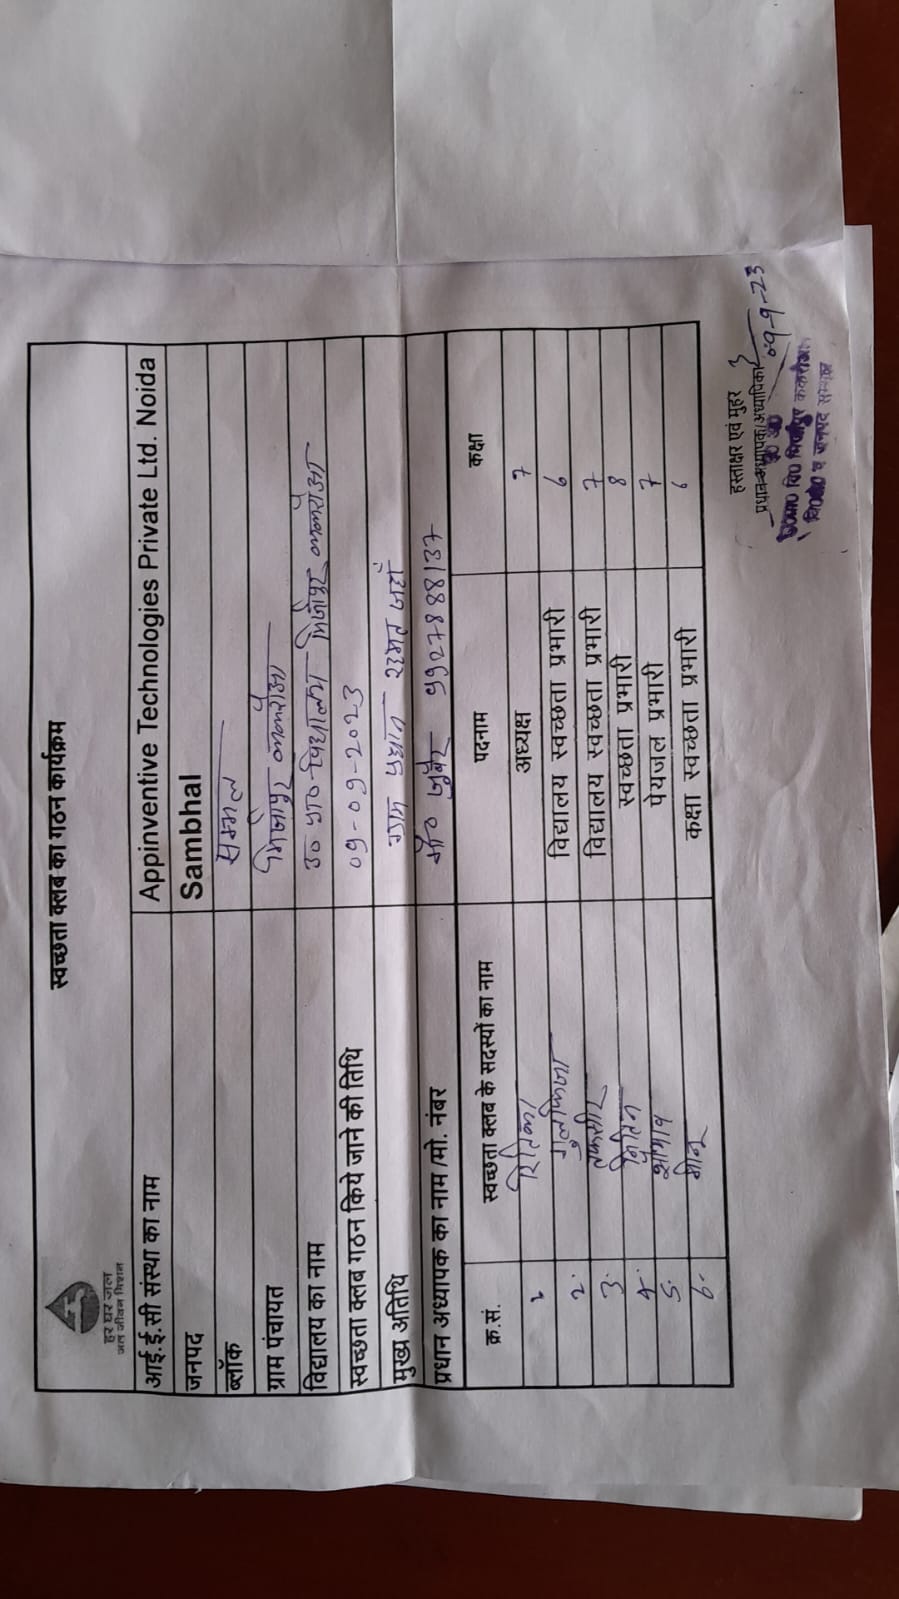 स्वच्छता क्लब का गठन कार्यक्रम
हर घर जल
जल जीवन मिशन
आई.ई.सी संस्था का नाम Appinventive Technologies Private Ltd. Noida
जनपद Sambhal
ब्लॉक सम्भल
ग्राम पंचायत मिर्जापुर
विद्यालय का नाम उ० प्रा० विद्यालय मिर्जापुर
स्वच्छता क्लब गठन किये जाने की तिथि 09-09-2023
मुख्य अतिथि ग्राम प्रधान
प्रधान अध्यापक का नाम /मो. नंबर मौ० जुबैर 9927888137
क्र.सं. स्वच्छता क्लब के सदस्यों का नाम पदनाम कक्षा
1 रितिका अध्यक्ष 7
2. विद्यालय स्वच्छता प्रभारी 6
3. विद्यालय स्वच्छता प्रभारी 7
4. नितिन स्वच्छता प्रभारी 8
5. पेयजल प्रभारी 7
6. कक्षा स्वच्छता प्रभारी 6
हस्ताक्षर एवं मुहर
प्रधान-अध्यापक/अध्यापिका
09-9-23